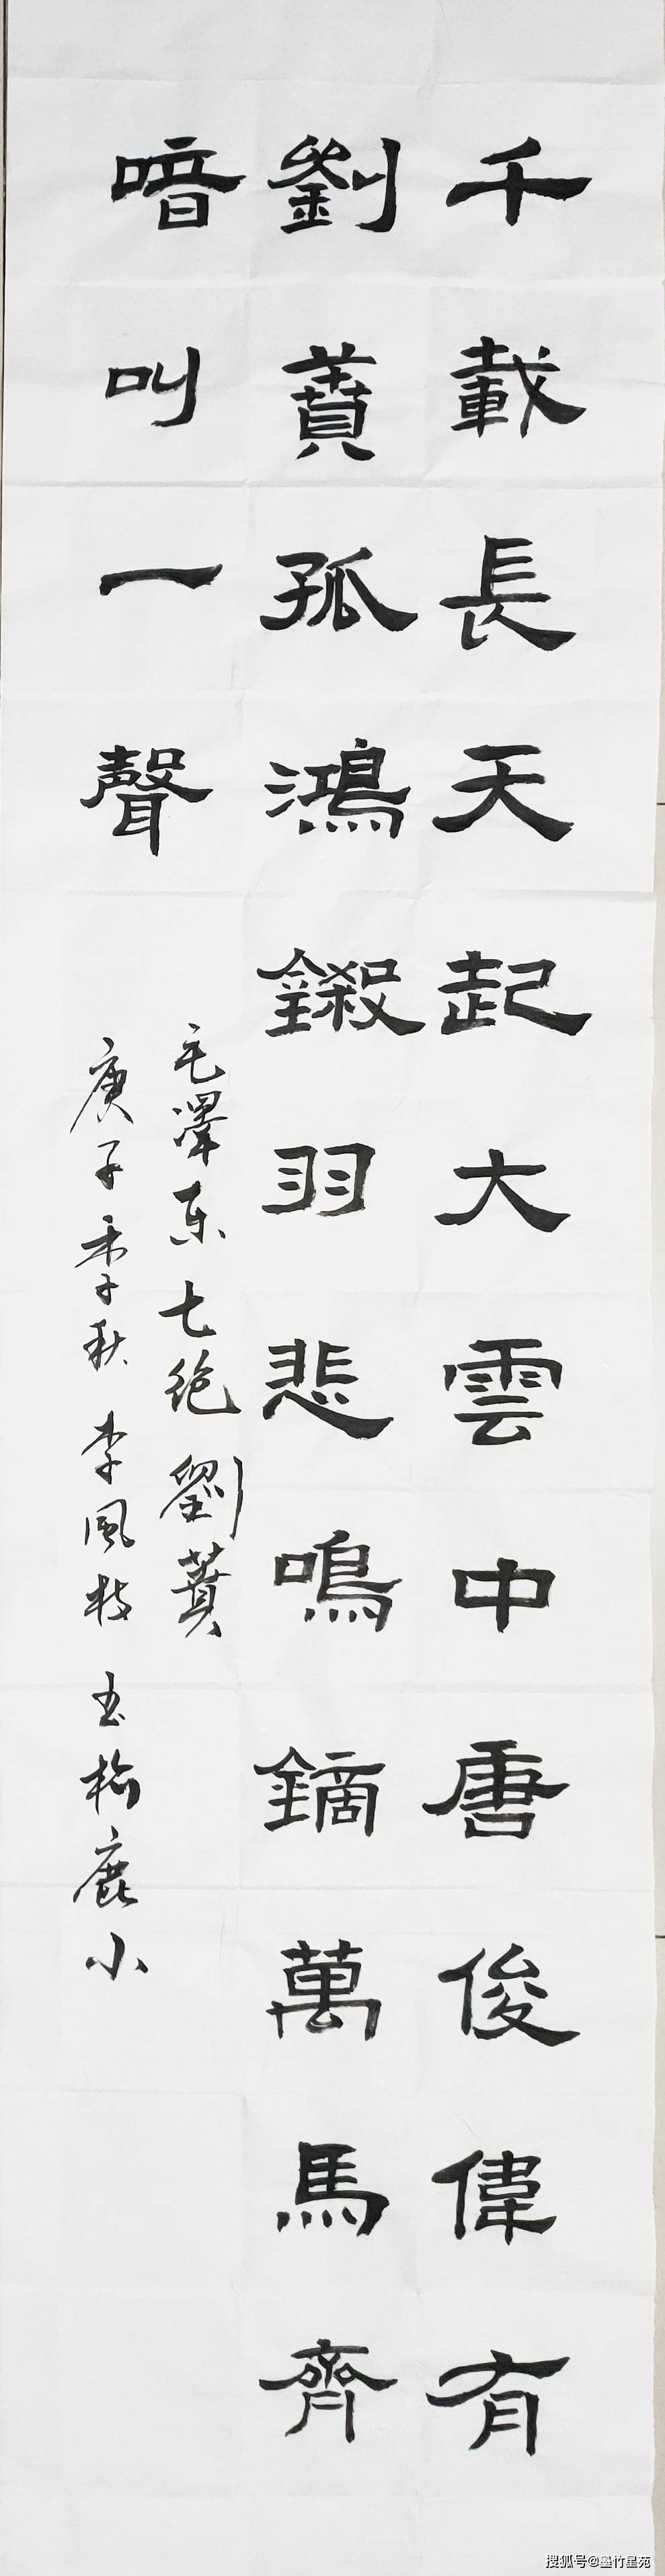 千載長天起大雲中唐俊偉有
劉蕡孤鴻鎩羽悲鳴鏑萬馬齊
喑叫一聲
毛澤东七绝劉蕡
庚子季秋李風枝书於鹿小
搜狐号@墨竹星苑